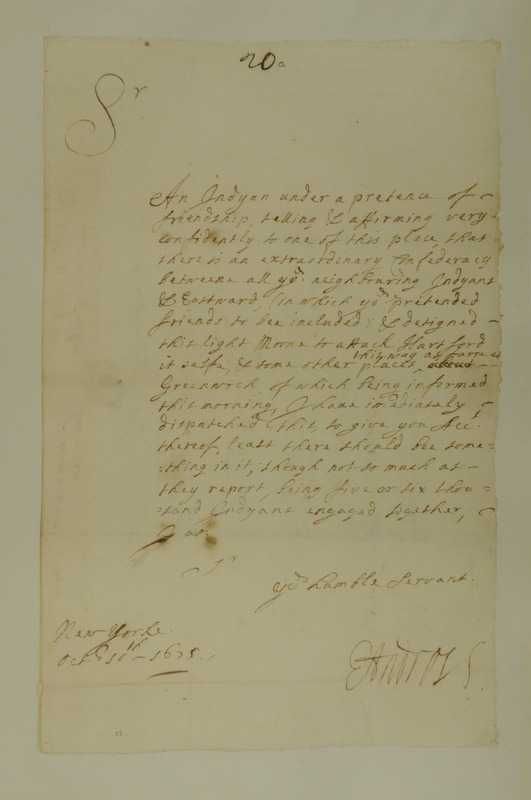 20a
Sr
An Indyan under a pretence of
friendship, telling & affirming very
confidently to one of this place, that
there is an extraordinary Confederacy
betweene all yor neighbouring Indyans
& Eastward, (in which yor pretended
friends to bee included, & designed
this light Moone to attack Hartford
it selfe, & some other places this way as farre as about
Greenwich, of which being informed
this morning, I have imediately
dispatched this, to give you Acct
thereof, least there should bee some-
:thing in it, though not so much as
they report, being five or six thou=
=sand Indyans engaged together,
I am
Sr
yor humble Servant.
New Yorke.
Octbr 10th 1675.
EAndros S